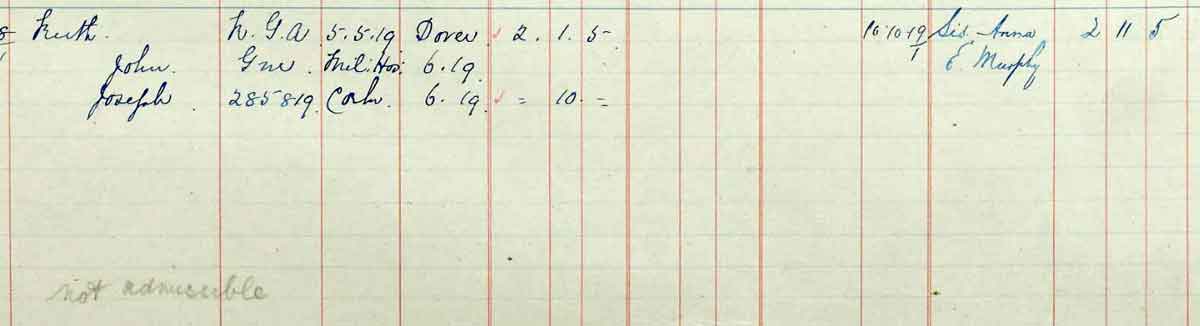 8/1 Keith. R.G.A 5.5.19 Dover 2. 1. 5 10.10.19/1 Sis. Anna 2 11 5
John. Gnr. Mil: Hos: 6.19. E. Murphy
Joseph 285819. Cork 6.19 = 10. =
not admissible